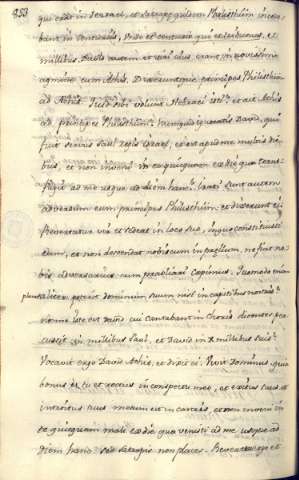 853
qui erat in Iezrael, et Satrapae quidem Philisthiim incede
bant in centuriis,
millibus, David autem et viri eius erant in novissimo
agmine cum Achis. Dixeruntque principes Philisthiim
ad Achis. Quid sibi volunt Hebraei isti, et ait Achis
ad principes Philisthiim. Numquid ignoratis David, qui
fuit servus Saul regis Israel, et est apud me multis die
bus, et non inveni in eo quidquam ex die qua trans
fugit ad me usque ad diem hanc. Irati sunt autem
adversum eum principes Philisthiim, et dixerunt ei
Revertatur vir et sedeat in loco suo, in quo constituisti
eum, et non descendat nobiscum in praelium, ne fiat no
bis adversarius cum praeliari coeperimus. Quomodo enim
aliter poterit dominum suum nisi in capitibus nostris.
Nonne iste est David, cui cantabant in choris dicentes per
cussit in millibus Saul, et David in X millibus suis.
Vocavit ergo David Achis, et dixit ei. Vivit Dominus, quia
bonus es tu et rectus in conspectu meo, et exitus tuus et
introitus tuus mecum est in castris, et non inveni in
te quicquam mali ex die qua venisti ad me usque ad
diem hanc sed satrapis non places. Revertere ergo et